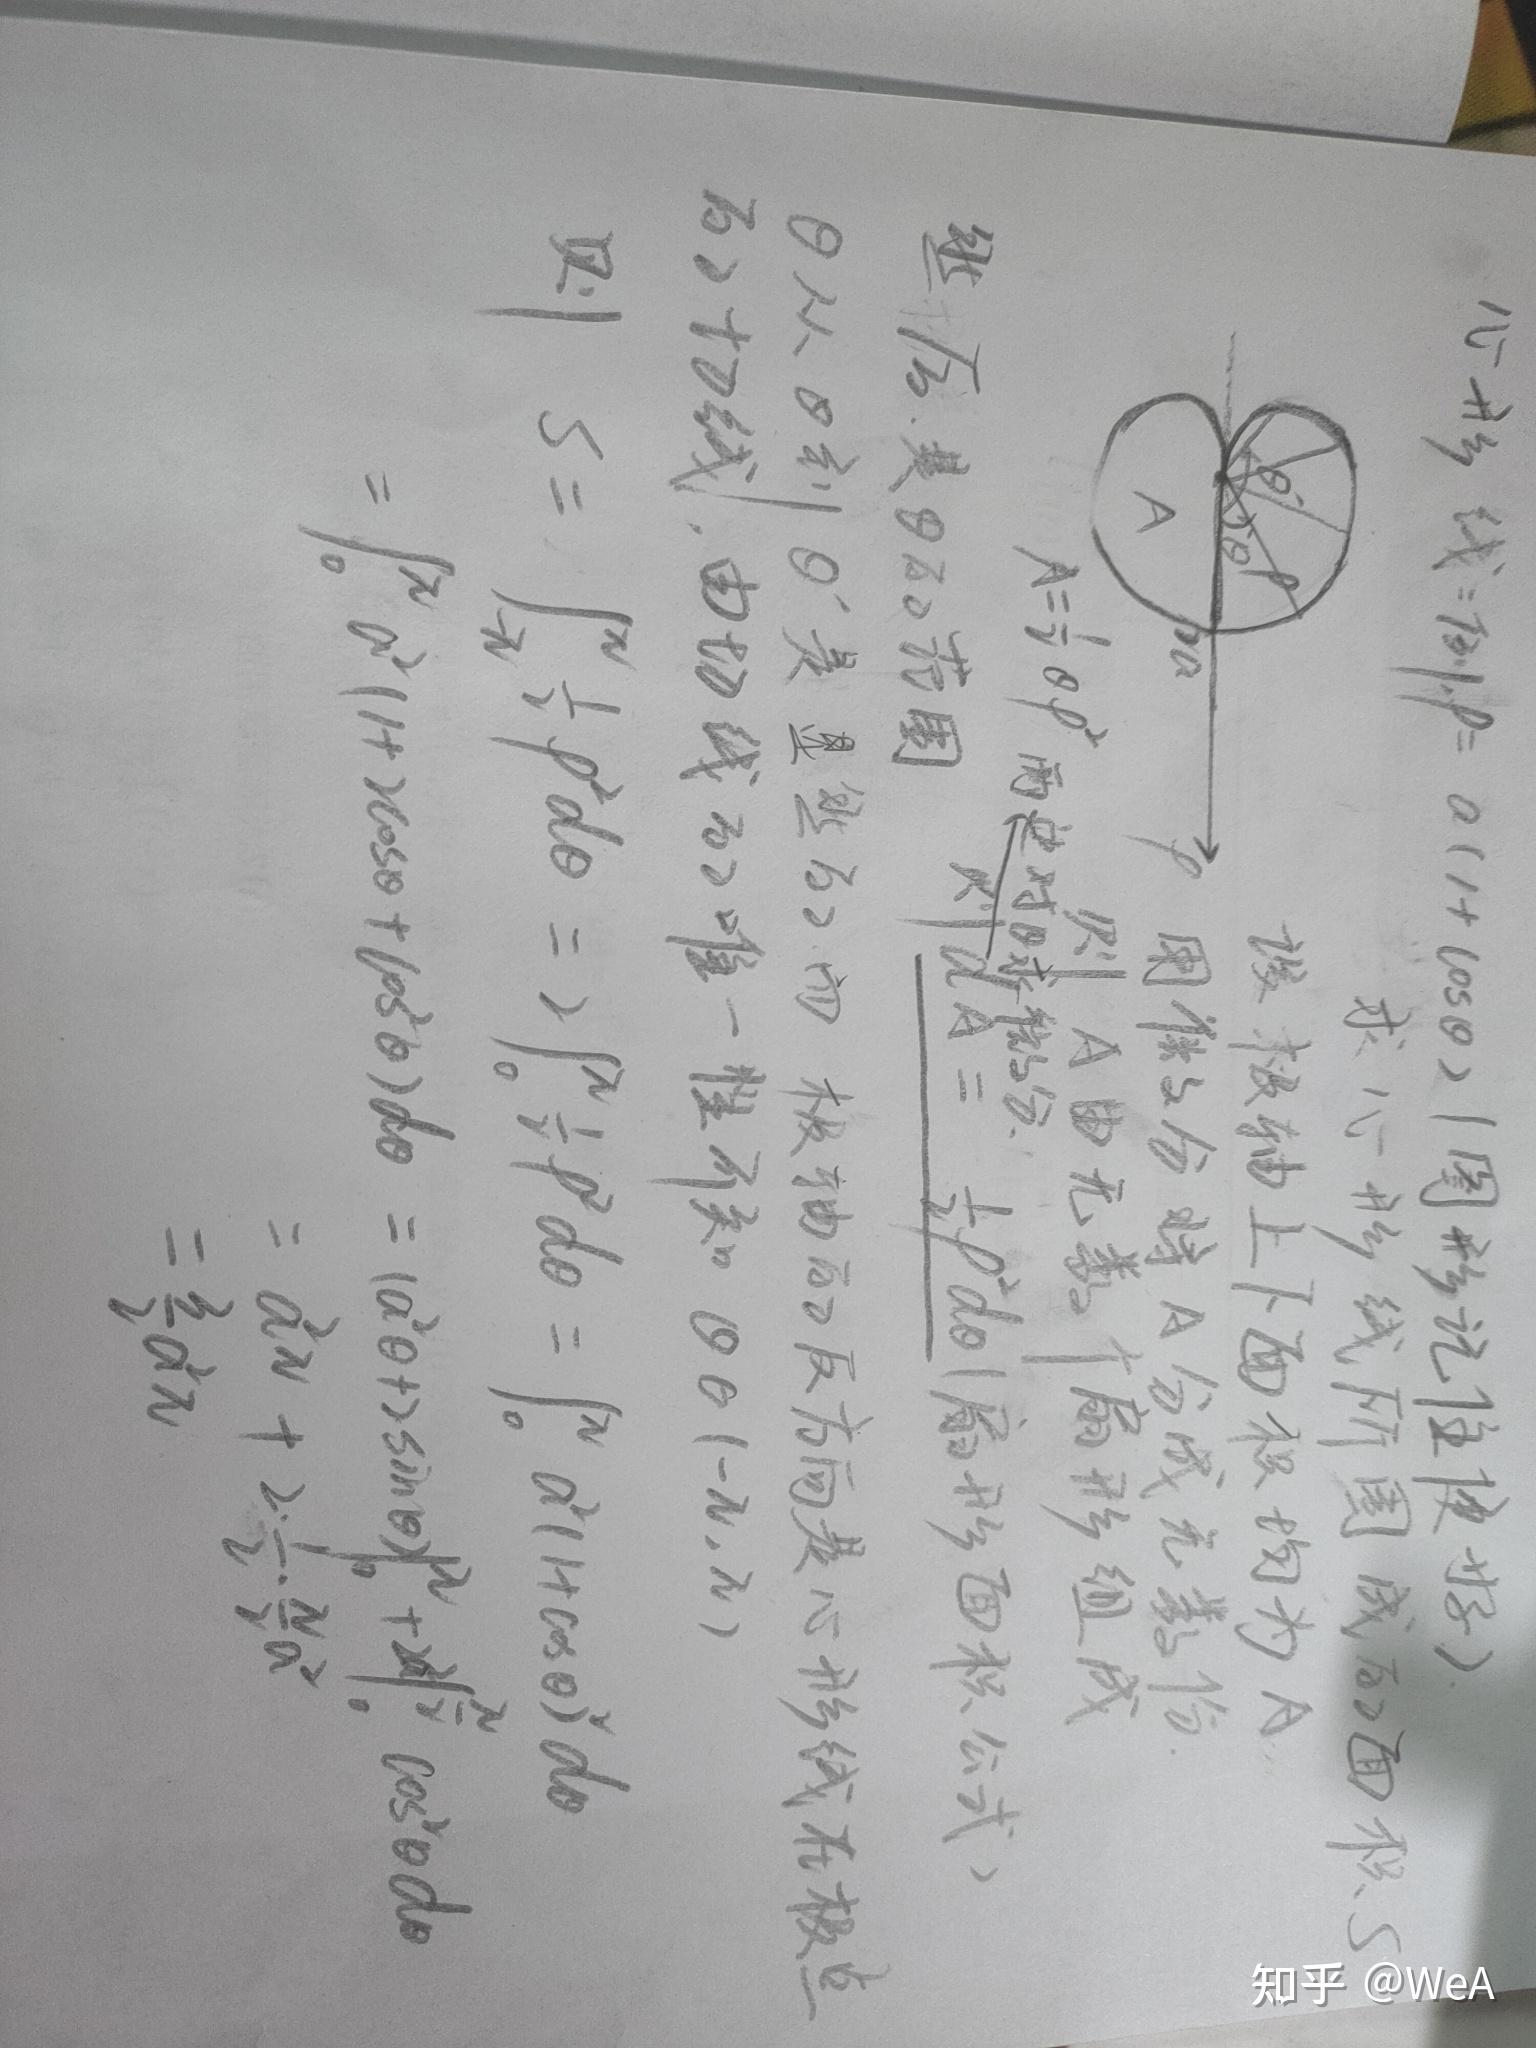 心形线：则ρ=a(1+cosθ)（图形记住使好）
求心形线所围成的面积S
设极轴上下面积均为A
用微分将A分成无数份
则A由无数个扇形组成
θ'
θ
ρ
A
2a
ρ
A=½θρ² 而是对θ求积分.
则dA=½ρ²dθ（扇形面积公式）
然后是θ的范围
θ从θ到θ'是重叠的而极轴的反方向是心形线在极点
的切线，由切线的唯一性可知θ∈(-π,π)
则 S=∫_{-π}^{π}½ρ²dθ=2∫_0^π½ρ²dθ=∫_0^π a²(1+cosθ)²dθ
=∫_0^π a²(1+2cosθ+cos²θ)dθ=(a²θ+2sinθ)|_0^π+2a²∫_0^{π/2}cos²θdθ
=a²π+2·½·π/2a²
=3/2a²π
知乎 @WeA